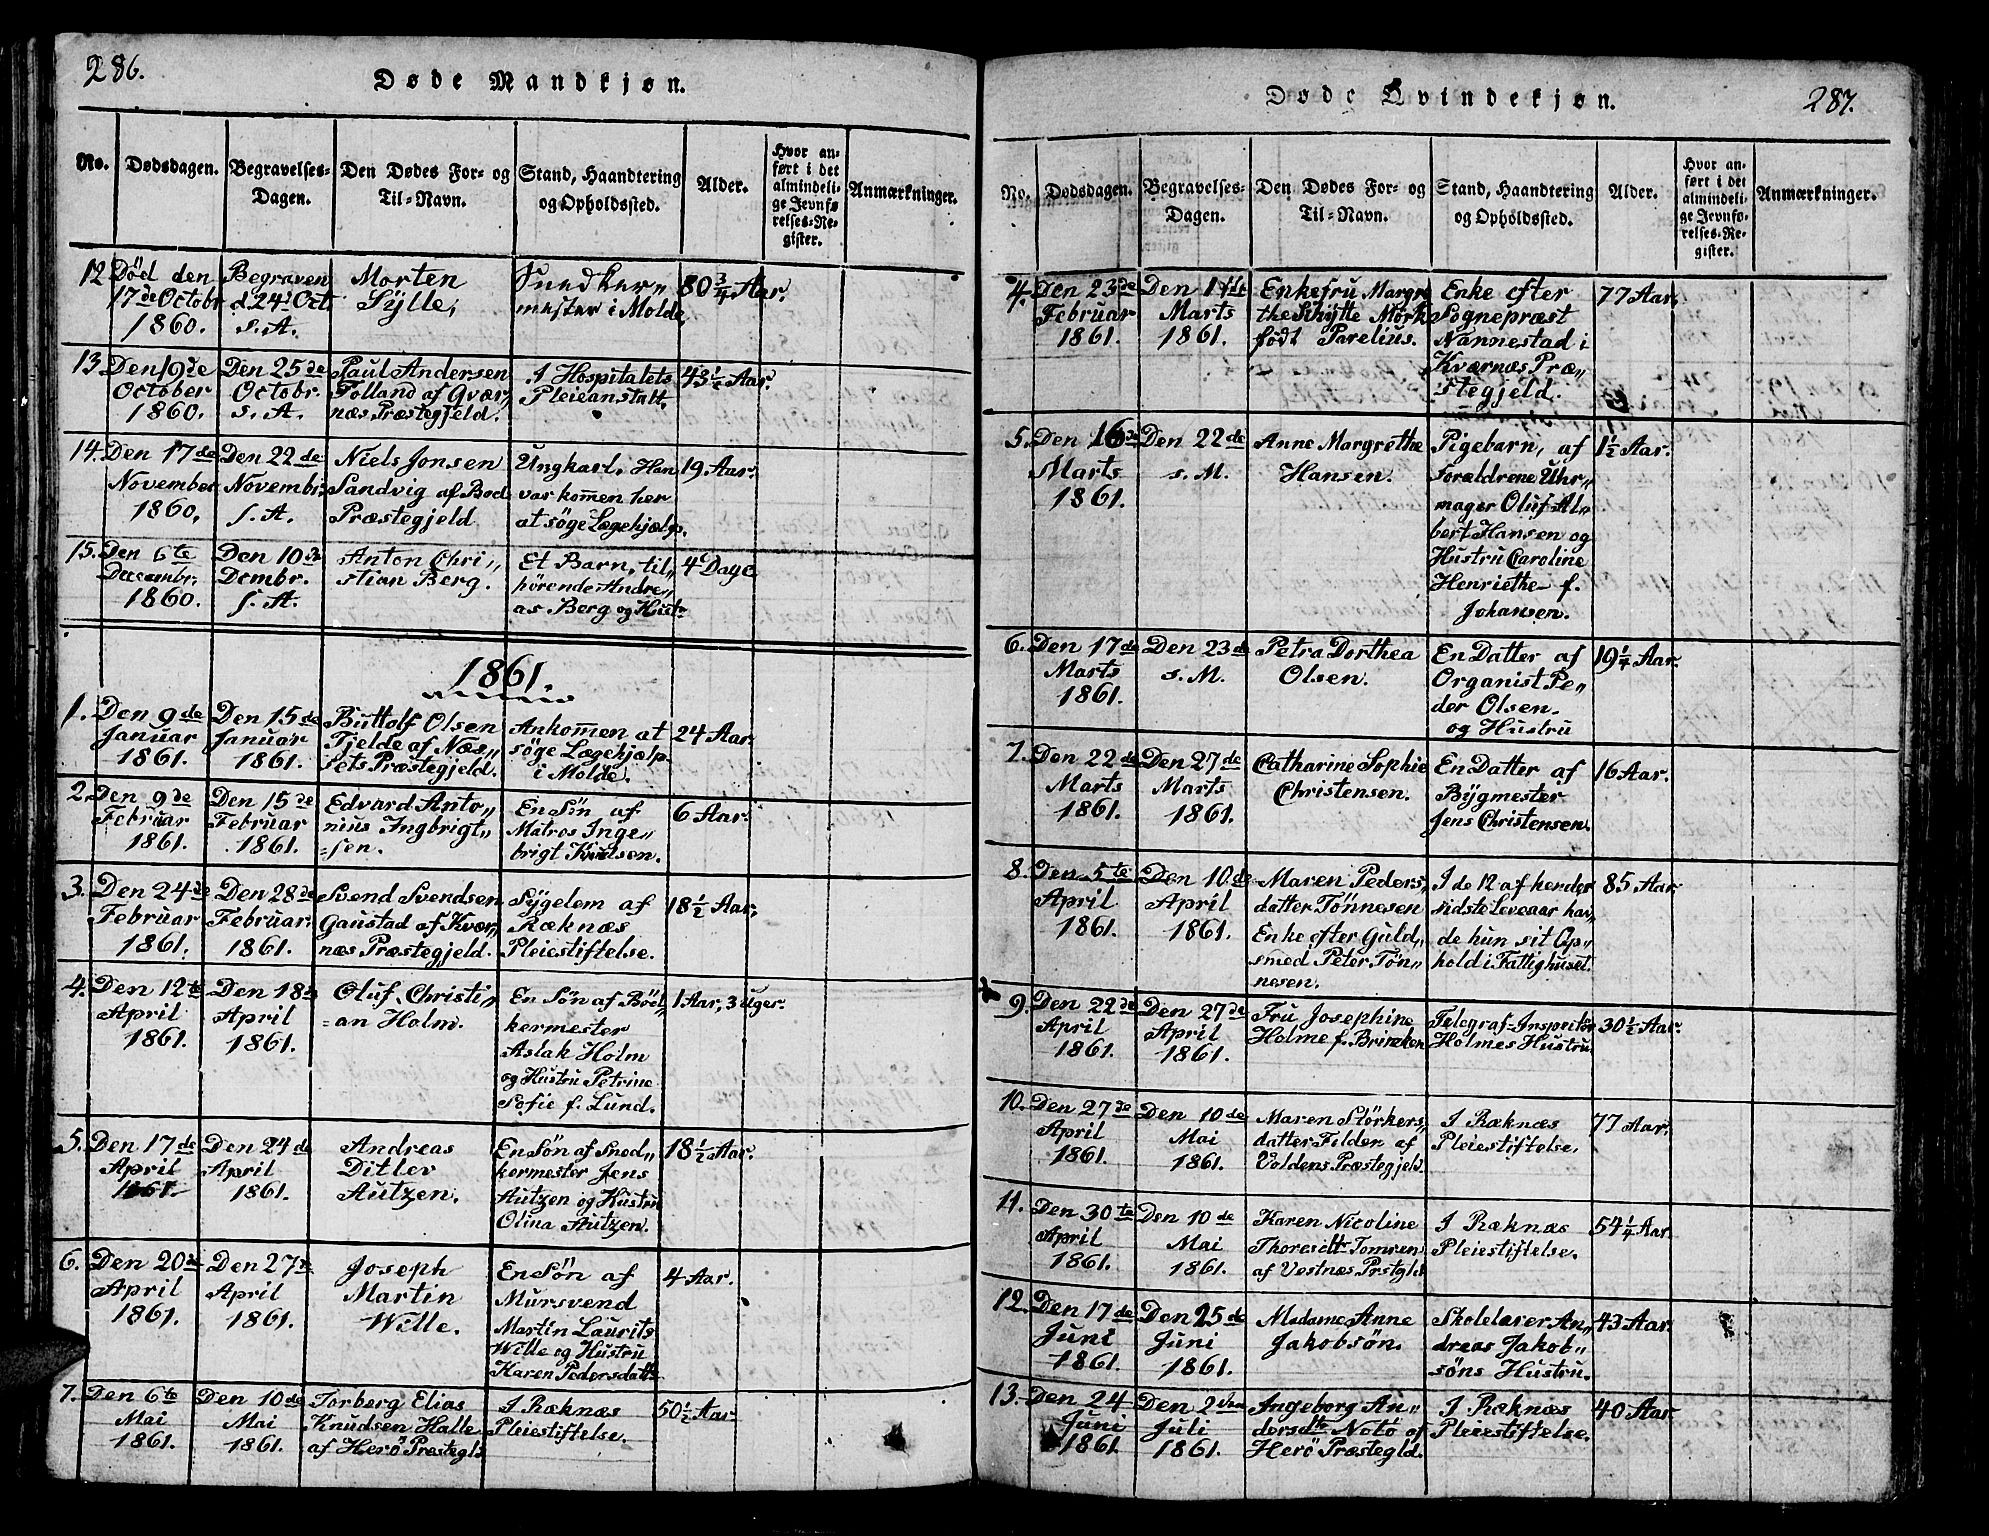 286.
Døde Mandkjøn.
No.
Dødsdagen.
Begravelses-
Dagen.
Den Dødes For- og
Til-Navn.
Stand, Haandtering
og Opholdssted.
Alder.
Hvor an-
ført i det
almindeli-
ge Jevnfø-
relses-Re-
gister.
Anmærkninger.
12
Død den
17de Octobr
1860.
Begraven
d. 24d Oct.
s. A.
Morten
Sylle,
Snedker„
mester i Molde,
80 3/4 Aar.
13.
Den 19de
October
1860.
Den 25de
Octobr.
s. A.
Paul Andersen
Folland af Qvær„
næs Præstegjeld.
I Hospitalets
Pleieanstalt.
43 1/2 Aar.
14.
Den 17de
November
1860.
Den 22de
Novembr.
s. A.
Niels Jonsen
Sandvig af Bod
Præstegjeld
Ungkarl, Han
var kommen her
at søge Lægehjælp.
19 Aar.
15.
Den 6te
Decembr.
1860.
Den 10de
Dembr.
s. A.
Anton Chri„
stian Berg.
Et Barn, til„
hörende Andre„
as Berg og Hust
4 Dage
1861.
1.
Den 9de
Januar
1861.
Den 15de
Januar
1861.
Buttolf Olsen
Tjelde af Næs„
sets Præstegjeld.
Ankommen at
søge Lægehjælp
i Molde.
24 Aar.
2.
Den 9de
Februar
1861.
Den 15de
Februar
1861.
Edvard Anto„
nius Ingbrigt„
=sen.
En Søn af
Matros Inge„
brigt Knudsen.
6 Aar.
3.
Den 24de
Februar
1861.
Den 28de
Februar.
1861.
Svend Svendsen
Gaustad af Kvær„
næs Præstegjeld.
Sygelem af
Ræknæs
Pleiestiftelse.
18 1/2 Aar,
4.
Den 12te
April
1861.
Den 18de
April
1861.
Oluf Christi„
=an Holm.
En Søn af Bød„
kermester
Aslak Holm
og Hustru Petrine
Sofie f. Lund.
1 Aar, 3 uger.
5.
Den 17de
April
1861.
Den 24de
April
1861.
Andreas
Ditlev
Autzen.
En Søn af Sned„
kermester Jens
Autzen og Hustru
Olina Autzen.
18 1/2 Aar.
6.
Den 20de
April
1861.
Den 27de
April
1861.
Joseph
Martin
Wille.
En Søn af
Mursvend
Martin Laurits
Wille og Hustru
Karen Pedersdatt.
4 Aar.
7.
Den 6te
Mai
1861.
Den 10de
Mai
1861.
Torberg Elias
Knudsen Halle
af Herö Præstegld
I Ræknæs
Pleiestiftelse.
50 1/2 Aar.
Døde Qvindekjøn.
287.
No.
Dødsdagen.
Begravelses-
Dagen.
Den Dødes For- og
Til-Navn.
Stand, Haandtering
og Opholdssted.
Alder.
Hvor an-
ført i det
almindeli-
ge Jevnfø-
relses-Re-
gister.
Anmærkninger.
4.
Den 23de
Februar
1861.
Marts
1861.
Enkefru Margre
the Schytte Mørk
født Parelius.
Enke efter
Sognepræst
Nannestad i
Kværnæs Præ„
stegjeld.
77 Aar,
5.
Den 16de
Marts
1861.
Den 22de
s. M.
Anne Margrethe
Hansen.
Pigebarn, af
Forældrene Uhr„
mager Oluf Al„
bert Hansen og
Hustru Caroline
Henriethe f.
Johansen.
1 1/2 Aar.
6.
Den 17de
Marts
1861.
Den 23de
s. M.
Petra Dorthea
Olsen.
En Datter af
Organist Pe„
der Olsen
og Hustru
19 1/4 Aar.
7.
Den 22de
Marts
1861.
Den 27de
Marts
1861.
Catharine Sophie
Christensen.
En Datter af
Bÿgmester
Jens Christensen.
16 Aar.
8.
Den 5te
April
1861.
Den 10de
April
1861.
Maren Peders„
datter Tönnesen
Enke efter Guld„
smed Peter Tön„
nesen.
I de 12 af hendes
sidste Leveaar hav„
de hun sit Op„
hold i Fattighuset.
85 Aar.
9.
Den 22de
April
1861.
Den 27de
April
1861.
Fru Josephine
Holme f. Brincken
Telegraf=Inspektör
Holmes Hustru
30 1/2 Aar.
10.
Den 27de
April
1861.
Den 10de
Mai
1861.
Maren Störkers„
datter af
Voldens Præstegjeld
I Ræknæs
Pleiestiftelse.
77 Aar.
11.
Den 30te
April
1861.
Den 10de
Mai
1861.
Karen Nicoline
Thoresdtr Tomren
af Vestnæs Prstgld
I Ræknæs
Pleiestiftelse.
54 1/4 Aar.
12.
Den 17de
Juni
1861.
Den 25de
Juni
1861.
Madame Anne
Jakobsön.
Skolelærer An„
dreas Jakob„
söns Hustru.
43 Aar.
13.
Den 24
Juni
1861
Den 2den
Juli
1861.
Ingeborg An„
dersdtr Notö af
Herö Præstegld.
I Ræknæs
Pleiestiftelse.
40 Aar.